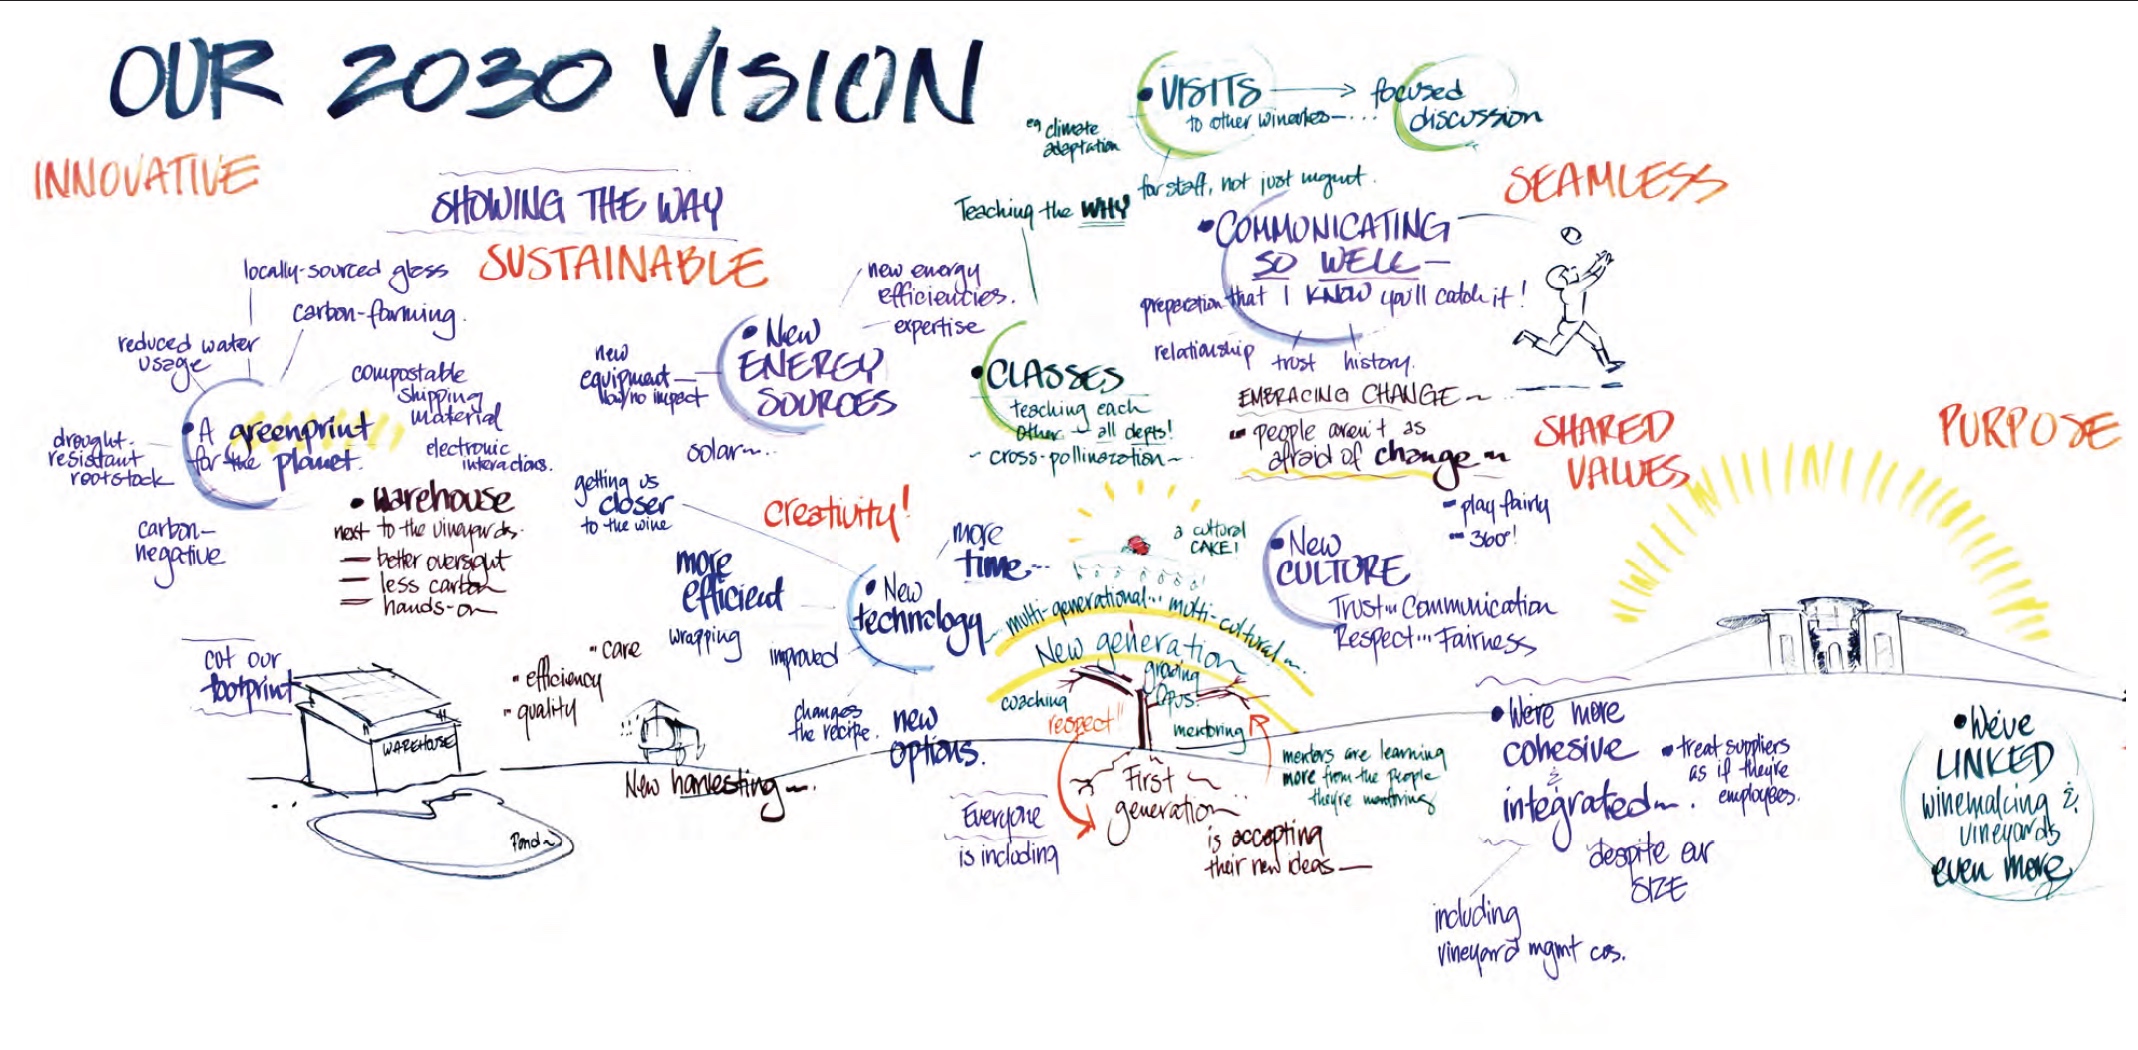 OUR 2030 VISION
INNOVATIVE
SHOWING THE WAY
SUSTAINABLE
locally-sourced glass
carbon-farming.
reduced water
usage
compostable
shipping
material
electronic
interactions.
drought-
resistant
rootstock
• A greenprint
for the planet.
carbon-
negative
• Warehouse
next to the vineyards.
— better oversight
— less carbon
— hands-on
cut our
footprint
WAREHOUSE
Pond~
new energy
efficiencies.
expertise
• New
ENERGY
SOURCES
new
equipment—
low/no impact
solar~...
getting us
closer
to the wine
creativity!
more
time~--
more
efficient
wrapping
• New
technology
improved
changes
the recipe.
new
options.
" care
" efficiency
" quality
New harvesting~..
• VISITS
to other wineries—...
focused
discussion
eg climate
adaptation
for staff, not just mgmt.
Teaching the WHY
• CLASSES
teaching each
other — all depts!
~ cross-pollinization ~
SEAMLESS
• COMMUNICATING
SO WELL —
that I KNOW you'll catch it!
preparation
relationship
trust
history.
EMBRACING CHANGE~
people aren't as
afraid of change~
SHARED
VALUES
- play fairly
- 360°!
• New
CULTURE
Trust... Communication
Respect... Fairness
a cultural
CAKE!
multi-generational... multi-cultural~..
New generation
growing
coaching
respect"
mentoring
First
generation
is accepting
their new ideas—
mentors are learning
more from the people
they're mentoring
Everyone
is including
PURPOSE
• We're more
cohesive
&
integrated~.
despite our
SIZE
• treat suppliers
as if they're
employees.
including
vineyard mgmt cos.
• We've
LINKED
winemaking &
vineyards
even more